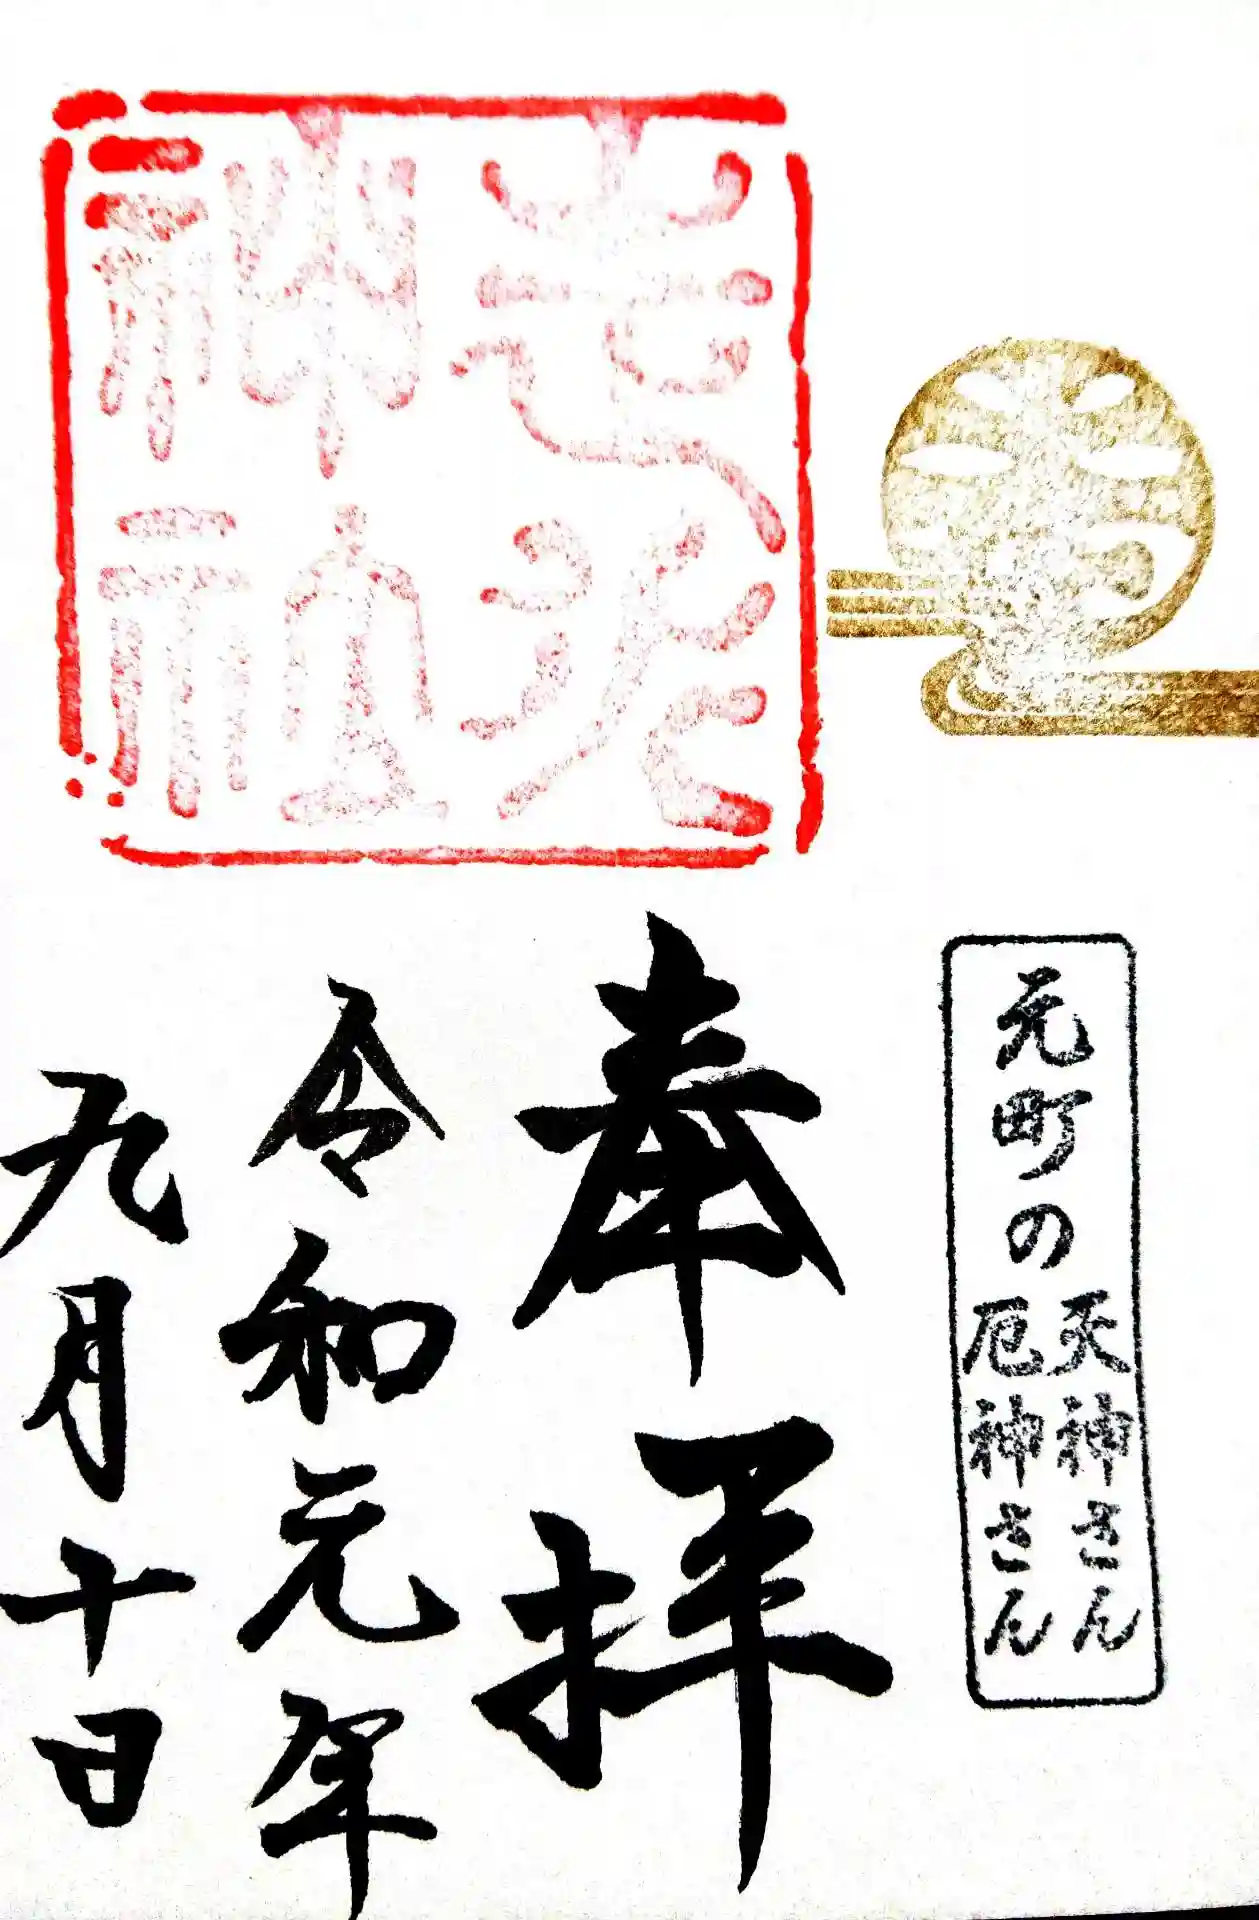 元町の
天神さん
厄神さん
走水
神社
奉拝
令和元年
九月十日